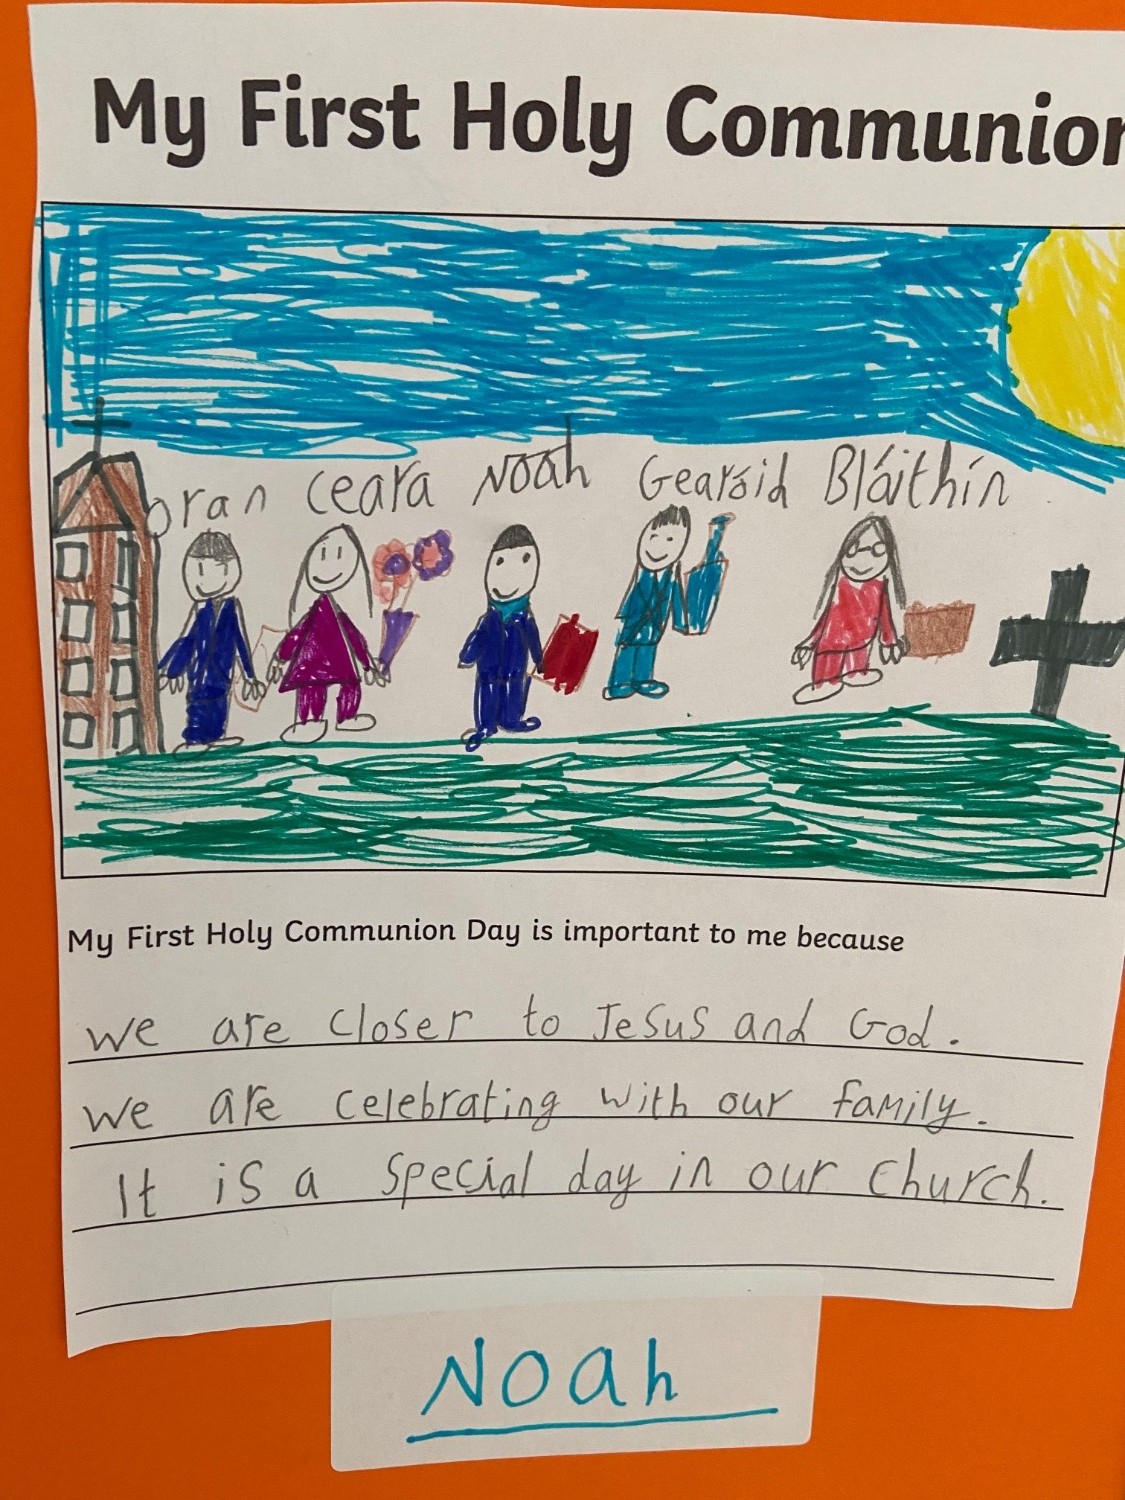 My First Holy Communion
oran ceara Noah Gearóid Bláithín
My First Holy Communion Day is important to me because
we are closer to Jesus and God.
we are celebrating with our family.
It is a special day in our church.
Noah